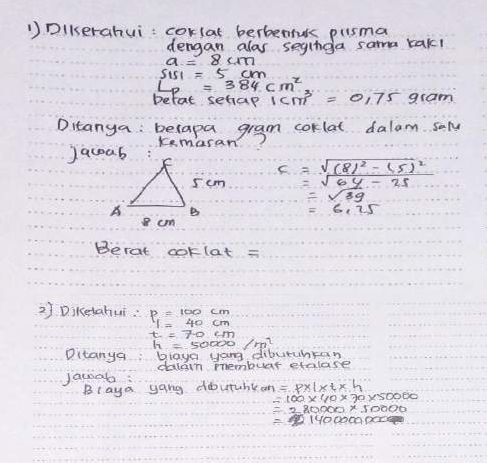 1) Diketahui : coklat berbentuk prisma
dengan alas segitiga sama kaki
a = 8 cm
sisi = 5 cm
Lp = 384 cm²
berat setiap 1 cm³ = 0,75 gram
Ditanya : berapa gram coklat dalam satu
kemasan?
Jawab :
C
5 cm
A B
8 cm
c = √(8)² - (5)²
= √64 - 25
= √39
= 6,25
Berat coklat =
2) Diketahui : p = 100 cm
l = 40 cm
t = 70 cm
h = 50000 /m²
Ditanya : biaya yang dibutuhkan
dalam membuat etalase
Jawab :
Biaya yang dibutuhkan = p x l x t x h
= 100 x 40 x 70 x 50000
= 280000 x 50000
= 14000000000